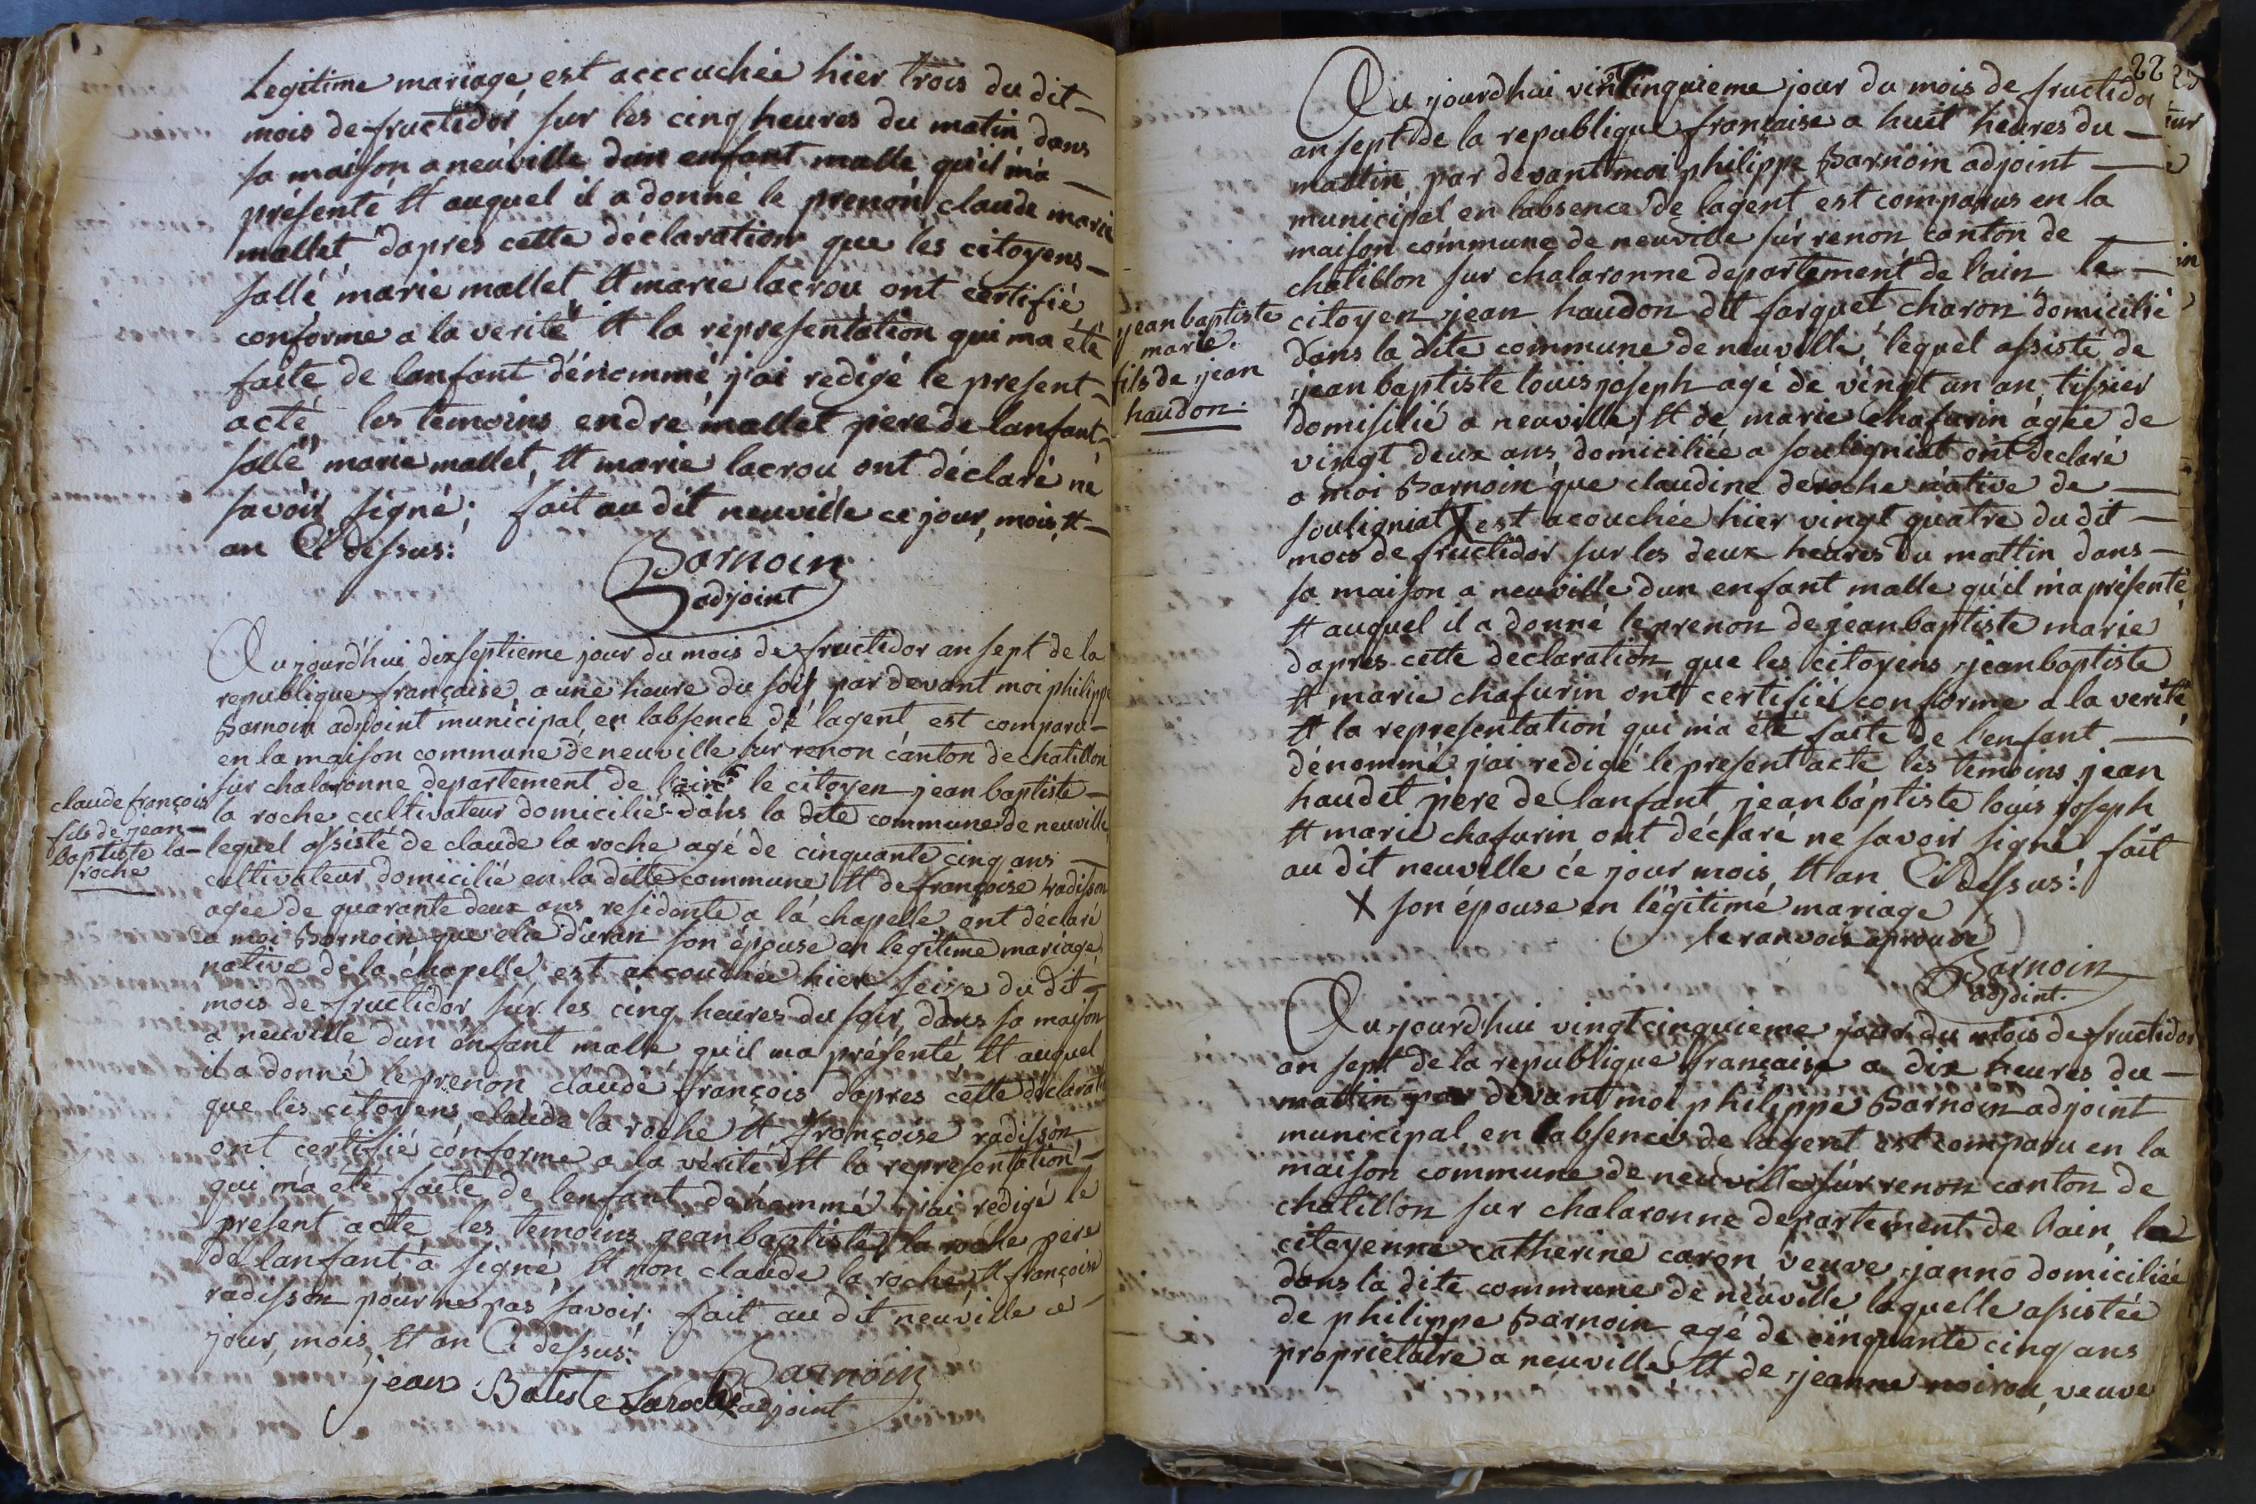 Legitime mariage, est acccuchée hier trois du dit
mois de fructidor sur les cinq heures du matin dans
sa maison a neuville dun enfant malle qu'il m'a
présenté et auquel il a donné le prenon claude marie
mallet dapres cette déclaration que les citoyens
sallé marie mallet et marie lacrou ont certifié
conforme a la verité et la representation qui ma été
faite de lanfant dénommé j'ai redigé le present
acté les temoins endré mallet pere de lanfant
sallé marie mallet, et marie lacrou ont déclaré ne
savoir signé; fait au dit neuville ce jour, mois, et
an Ci dessus:
Barnoin
adjoint
Au jourd'hui dixseptieme jour du mois de fructidor an sept de la
republique française a une heure du soir par devant moi philippe
Barnoin adjoint municipal en labsence de lagent est comparu
en la maison commune de neuville sur renon canton de chatillon
sur chalaronne departement de lain le citoyen jean baptiste
claude françois
fils de jean
baptiste la
roche
la roche cultivateur domicilié dans la dite commune de neuville
lequel assisté de claude la roche agé de cinquante cinq ans
cultivateur domicilié en la ditte commune et de françoise radisson
agée de quarante deux ans residente a la chapelle ont déclaré
a moi Barnoin que elie duran son épouse en legitime mariage
native de la chapelle est accouchée hier seize du dit
mois de fructidor sur les cinq heures du soir, dans sa maison
a neuville dun enfant malle qu'il ma présenté et auquel
il a donné le prenon claude françois dapres cette déclarat
que les citoyens claude la roche et françoise radisson
ont certifié conforme a la vérité et la representation
qui m'a été faite de lenfant dénommé j'ai redigé le
present acte les temoins jean baptiste la roche pere
de lanfant a signé, et non claude la roche et françoise
radisson pour ne pas savoir; fait au dit neuville ce
jour, mois, et an Ci dessus:
jean Batiste Laroche
Barnoin
adjoint
22
Au jourdhui vintcinquieme jour du mois de fructidor
an sept de la republique française a huit heures du
mattin par devant moi philippe Barnoin adjoint
municipal en labsence de lagent est comparus en la
maison commune de neuville sur renon canton de
chatillon sur chalaronne departement de l'ain le
jean baptiste
marie
fils de jean
haudon
citoyen jean haudon dit farquet charon domicilié
dans la dite commune de neuville, lequel assisté de
jean baptiste louis joseph agé de vingt un an tissier
domisilié a neuville et de marie chafurin agée de
vingt deux ans domiciliée a souligniat ont déclaré
a moi Barnoin que claudine deroche native de
souligniat X est acouchée hier vingt quatre du dit
mois de fructidor sur les deux heures du mattin dans
sa maison a neuville dun enfant malle qu'il m'a présenté
et auquel il a donné le prenon de jean baptiste marie
dapres cette declaration que les citoyens jean baptiste
et marie chafurin ont certifié conforme a la verité
et la representation qui m'a été faite de l'enfant
dénommé j'ai redigé le present acte les temoins jean
haudet père de lanfant jean baptiste louis joseph
et marie chafurin ont déclaré ne savoir signé fait
au dit neuville ce jour mois et an Ci dessus:
X son épouse en légitimé mariage
le ranvois aprouvé
Barnoin
adjoint.
Au jourd'hui vingt cinquieme jour du mois de fructidor
an sept de la republique française a dix heures du
mattin par devant moi philippe Barnoin adjoint
municipal en labsence de lagent est comparu en la
maison commune de neuville sur renon canton de
chatillon sur chalaronne departement de lain, la
citoyenne catherine caron veuve janno domiciliée
dans la dite commune de neuville laquelle assistée
de philippe Barnoin agé de cinquante cinq ans
proprietaire a neuville et de jeanne noirou, veuve